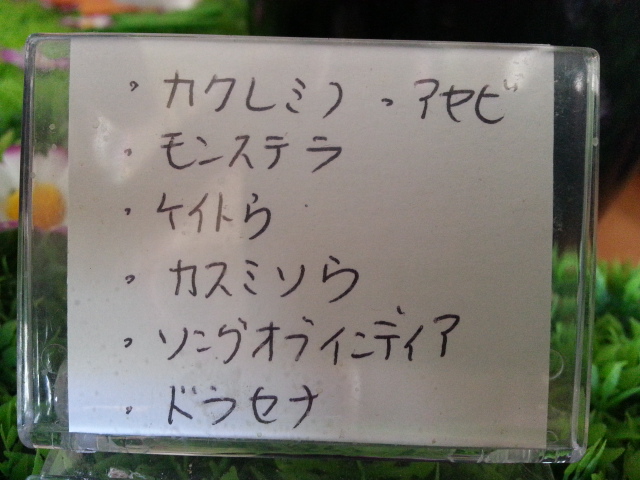 ・カクレミノ ・アセビ
・モンステラ
・ケイトウ
・カスミソウ
・ソングオブインディア
・ドラセナ